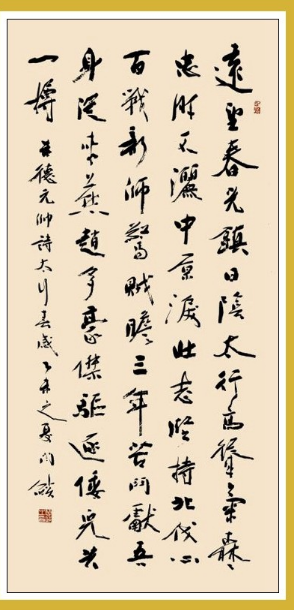 遠望春光鎮日陰太行高聳氣森
忠肝不灑中原淚壯志堅持北伐心
百戰新師驚賊膽三年苦鬥獻吾
身從來燕趙多豪傑驅逐倭兒共
一樽 朱德元帥詩太行春感 之夏